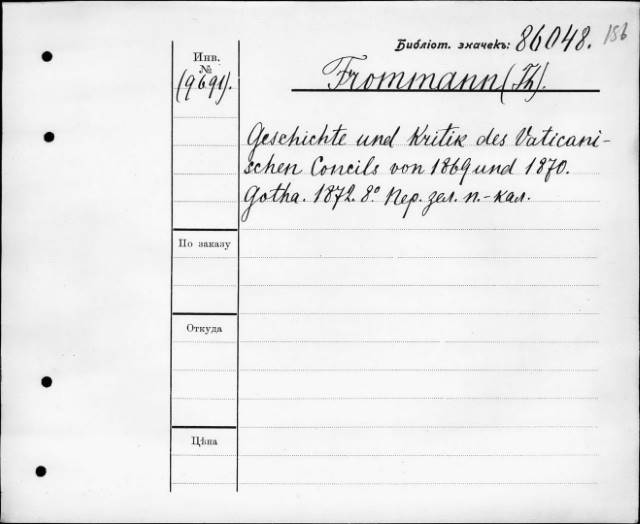 Библіот. значекъ: 86048. 156
Инв. №
(9691).
Frommann (Th).
Geschichte und Kritik des Vaticani-
schen Concils von 1869 und 1870.
Gotha. 1872. 8º Пер. зел. п.-кал.
По заказу
Откуда
Цѣна